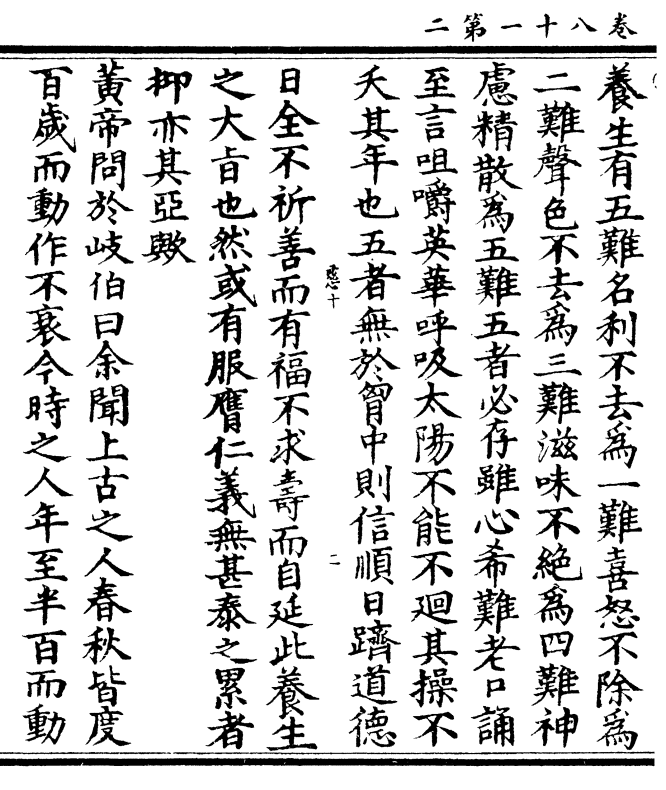 卷八十一第二
養生有五難名利不去爲一難喜怒不除爲
二難聲色不去爲三難滋味不絶爲四難神
慮精散爲五難五者必存雖心希難老口誦
至言咀嚼英華呼吸太陽不能不𢌞其操不
夭其年也五者無於胷中則信順日躋道德
日全不祈善而有福不求壽而自延此養生
之大旨也然或有服膺仁義無甚泰之累者
抑亦其亞歟
黃帝問於岐伯曰余聞上古之人春秋皆度
百歲而動作不衰今時之人年至半百而動
十
二